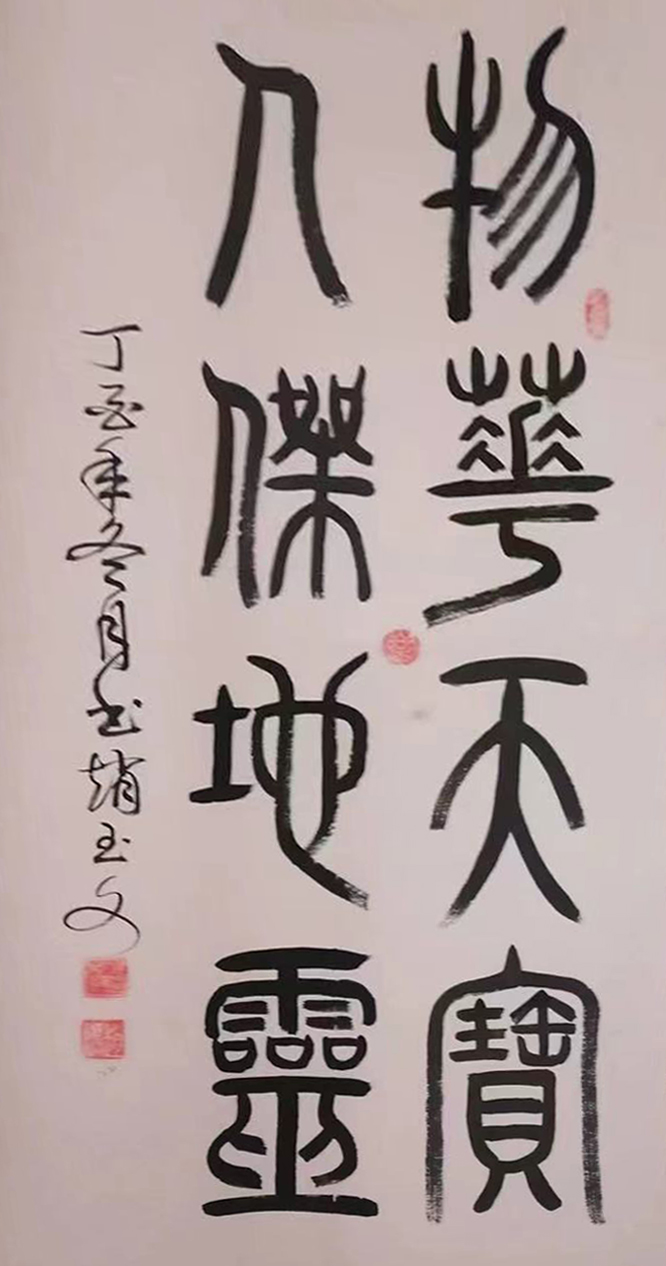 物華天寶
人傑地靈
丁酉年冬月書趙玉文